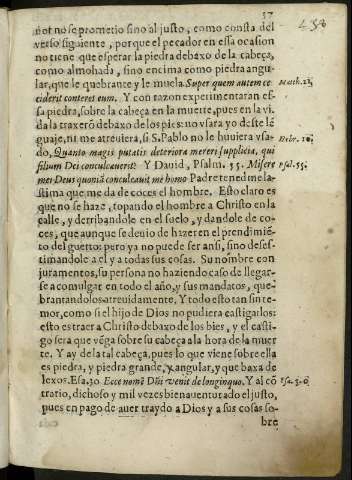 37
438
ñor no se prometio sino al justo, como consta del
verso siguiente, porque el pecador en essa ocasion
no tiene que esperar la piedra debaxo de la cabeça,
como almohada, sino encima como piedra angu-
lar, que le quebrante y le muela. Super quem autem ce
ciderit conteret eum. Y con razon experimentaran es-
sa piedra, sobre la cabeça en la muerte, pues en la vi-
da la traxerō debaxo de los pies: no vsara yo deste lē
guaje, ni me atreuiera, si S. Pablo no le huuiera vsa-
do, Quanto magis putatis deteriora mereri supplicia, qui
filium Dei conculcauerit? Y Dauid, Psalm. 55. Misere
mei Deus quoniā conculcauit me homo Padre tened me la-
stima que me da de coces el hombre. Esto claro es
que no se haze, topando el hombre a Christo en la
calle, y derribandole en el suelo, y dandole de co-
ces, que aunque se deuio de hazer en el prendimiē-
to del guerto: pero ya no puede ser ansi, sino deses-
timandole a el y a todas sus cosas. Su nōmbre con
juramentos, su persona no haziendo caso de llegar-
se a comulgar en todo el año, y sus mandatos, que-
brantandolos atreuidamente. Y todo esto tan sin te-
mor, como si el hijo de Dios no pudiera castigarlos:
esto es traer a Christo debaxo de los pies, y el casti-
go sera que vēga sobre su cabeça a la hora de la muer
te. Y ay de la tal cabeça, pues lo que viene sobre ella
es piedra, y piedra grande, y angular, y que baxa de
lexos. Esa. 30. Ecce nomē Dñi venit de longinquo. Y al cō
trario, dichoso y mil vezes bienauenturado el justo,
pues en pago de auer traydo a Dios y a sus cosas so-
bre
Matth. 21.
Hebr. 10.
Psal. 55.
Esa. 30.